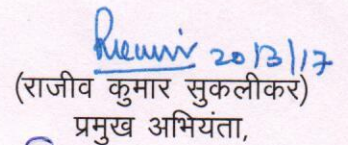 20/3/17
(राजीव कुमार सुकलीकर)
प्रमुख अभियंता,